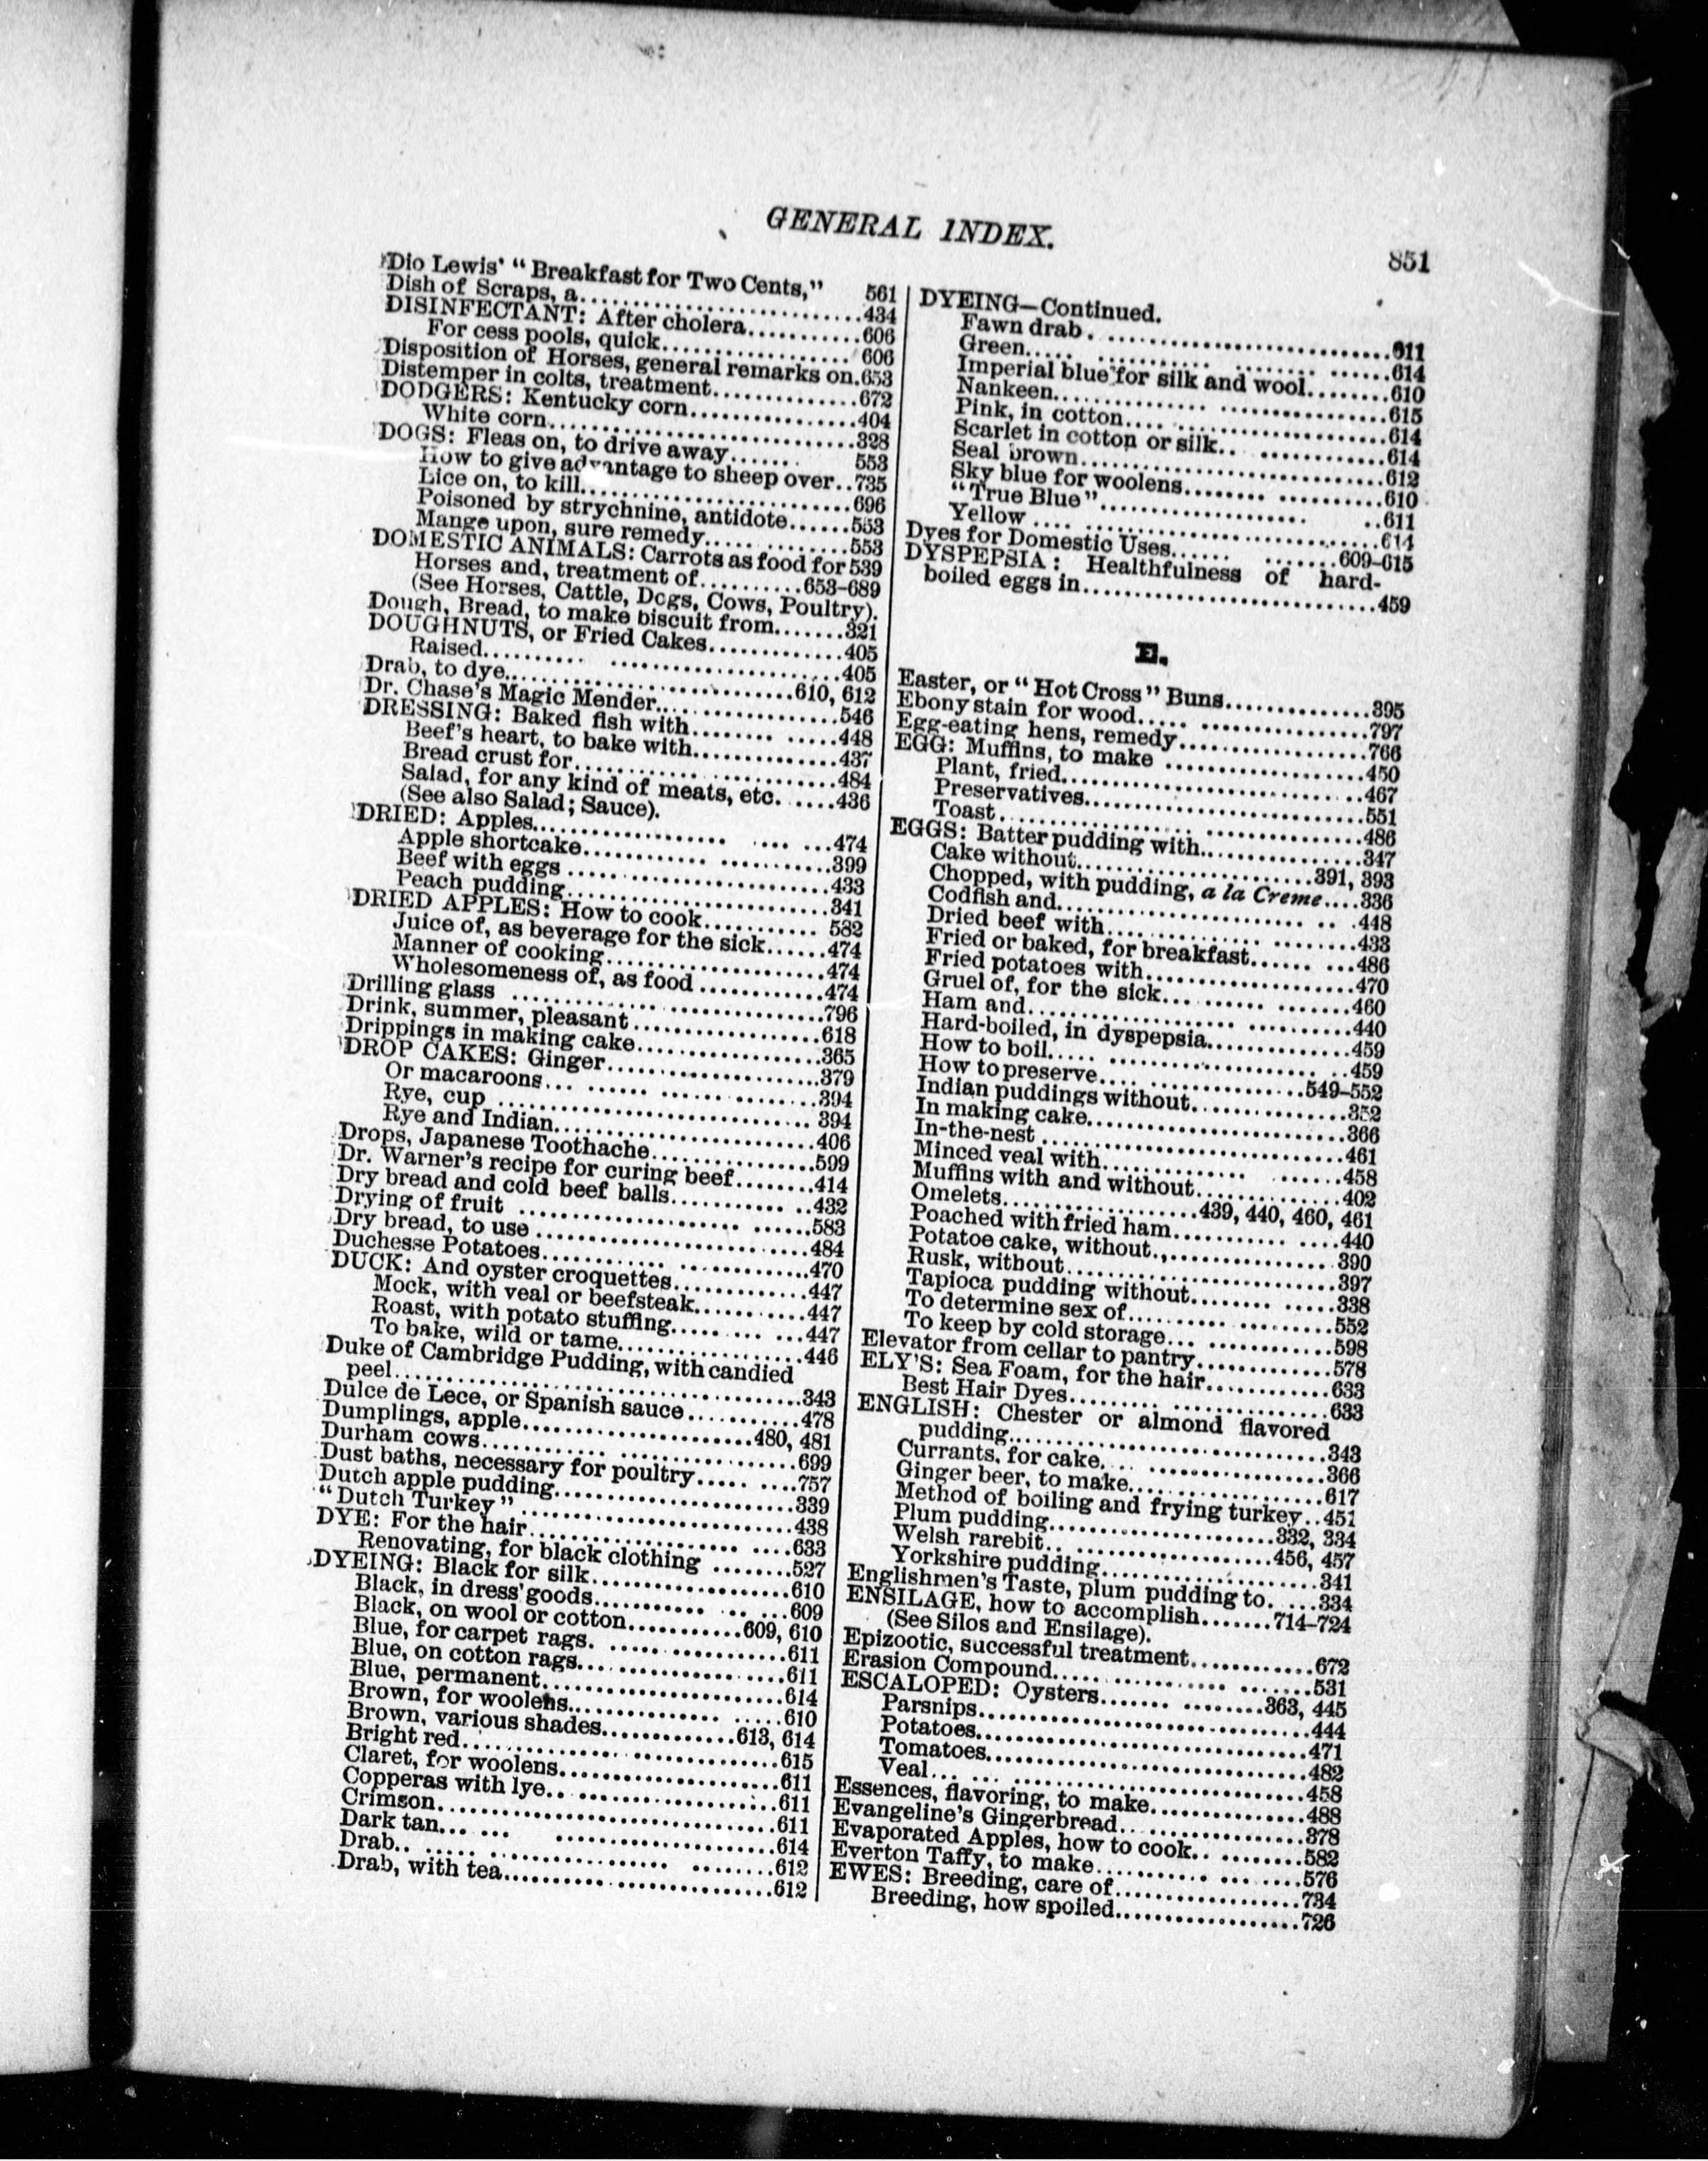 GENERAL INDEX.
851
Dio Lewis' "Breakfast for Two Cents," 561
Dish of Scraps, a..............................434
DISINFECTANT: After cholera...........606
For cess pools, quick.................... 606
Disposition of Horses, general remarks on.653
Distemper in colts, treatment..............672
DODGERS: Kentucky corn.................404
White corn................................328
DOGS: Fleas on, to drive away....... 553
How to give advantage to sheep over..735
Lice on, to kill..............................696
Poisoned by strychnine, antidote......553
Mange upon, sure remedy...............553
DOMESTIC ANIMALS: Carrots as food for 539
Horses and, treatment of..........653-689
(See Horses, Cattle, Dogs, Cows, Poultry).
Dough, Bread, to make biscuit from.......321
DOUGHNUTS, or Fried Cakes.............405
Raised....................................405
Drab, to dye..............................610, 612
Dr. Chase's Magic Mender..................546
DRESSING: Baked fish with..............448
Beef's heart, to bake with..............437
Bread crust for...........................484
Salad, for any kind of meats, etc. .....436
(See also Salad; Sauce).
DRIED: Apples..........................474
Apple shortcake..........................399
Beef with eggs ..........................433
Peach pudding..........................341
DRIED APPLES: How to cook........... 582
Juice of, as beverage for the sick......474
Manner of cooking......................474
Wholesomeness of, as food ............474
Drilling glass ..............................796
Drink, summer, pleasant...................618
Drippings in making cake..................365
DROP CAKES: Ginger.....................379
Or macaroons............................394
Rye, cup ............................... 394
Rye and Indian..........................406
Drops, Japanese Toothache................599
Dr. Warner's recipe for curing beef........414
Dry bread and cold beef balls.............432
Drying of fruit ............................583
Dry bread, to use ..........................484
Duchesse Potatoes..........................470
DUCK: And oyster croquettes.............447
Mock, with veal or beefsteak...........447
Roast, with potato stuffing.............447
To bake, wild or tame..................446
Duke of Cambridge Pudding, with candied
peel....................................343
Dulce de Lece, or Spanish sauce...........478
Dumplings, apple......................480, 481
Durham cows...............................699
Dust baths, necessary for poultry..........757
Dutch apple pudding.......................339
"Dutch Turkey" ............................438
DYE: For the hair..........................633
Renovating, for black clothing ........527
DYEING: Black for silk....................610
Black, in dress goods....................609
Black, on wool or cotton...........609, 610
Blue, for carpet rags.....................611
Blue, on cotton rags.....................611
Blue, permanent.........................614
Brown, for woolens......................610
Brown, various shades.............613, 614
Bright red................................615
Claret, for woolens......................611
Copperas with lye.......................611
Crimson..................................611
Dark tan.................................614
Drab.....................................612
Drab, with tea...........................612
DYEING—Continued.
Fawn drab ...............................611
Green....................................614
Imperial blue for silk and wool........610
Nankeen.................................615
Pink, in cotton..........................614
Scarlet in cotton or silk................614
Seal brown..............................612
Sky blue for woolens...................610
"True Blue"............................611
Yellow ..................................614
Dyes for Domestic Uses.............609-615
DYSPEPSIA: Healthfulness of hard-
boiled eggs in...........................459
E.
Easter, or "Hot Cross" Buns..............395
Ebony stain for wood.....................797
Egg-eating hens, remedy..................766
EGG: Muffins, to make ...................450
Plant, fried..............................467
Preservatives............................551
Toast....................................486
EGGS: Batter pudding with...............347
Cake without.......................391, 393
Chopped, with pudding, a la Creme....336
Codfish and..............................448
Dried beef with.........................433
Fried or baked, for breakfast..........486
Fried potatoes with.....................470
Gruel of, for the sick...................460
Ham and................................440
Hard-boiled, in dyspepsia..............459
How to boil..............................459
How to preserve....................549-552
Indian puddings without...............352
In making cake.........................366
In-the-nest ..............................461
Minced veal with.......................458
Muffins with and without..............402
Omelets...................439, 440, 460, 461
Poached with fried ham................440
Potatoe cake, without..................390
Rusk, without...........................397
Tapioca pudding without..............338
To determine sex of....................552
To keep by cold storage................598
Elevator from cellar to pantry............578
ELY'S: Sea Foam, for the hair............633
Best Hair Dyes..........................633
ENGLISH: Chester or almond flavored
pudding.................................343
Currants, for cake.......................366
Ginger beer, to make...................617
Method of boiling and frying turkey..451
Plum pudding......................332, 334
Welsh rarebit.......................456, 457
Yorkshire pudding......................341
Englishmen's Taste, plum pudding to. ....334
ENSILAGE, how to accomplish.......714-724
(See Silos and Ensilage).
Epizootic, successful treatment............672
Erasion Compound........................531
ESCALOPED: Oysters................363, 445
Parsnips.................................444
Potatoes.................................471
Tomatoes................................482
Veal.....................................458
Essences, flavoring, to make..............488
Evangeline's Gingerbread.................378
Evaporated Apples, how to cook...........582
Everton Taffy, to make...................576
EWES: Breeding, care of..................734
Breeding, how spoiled..................726